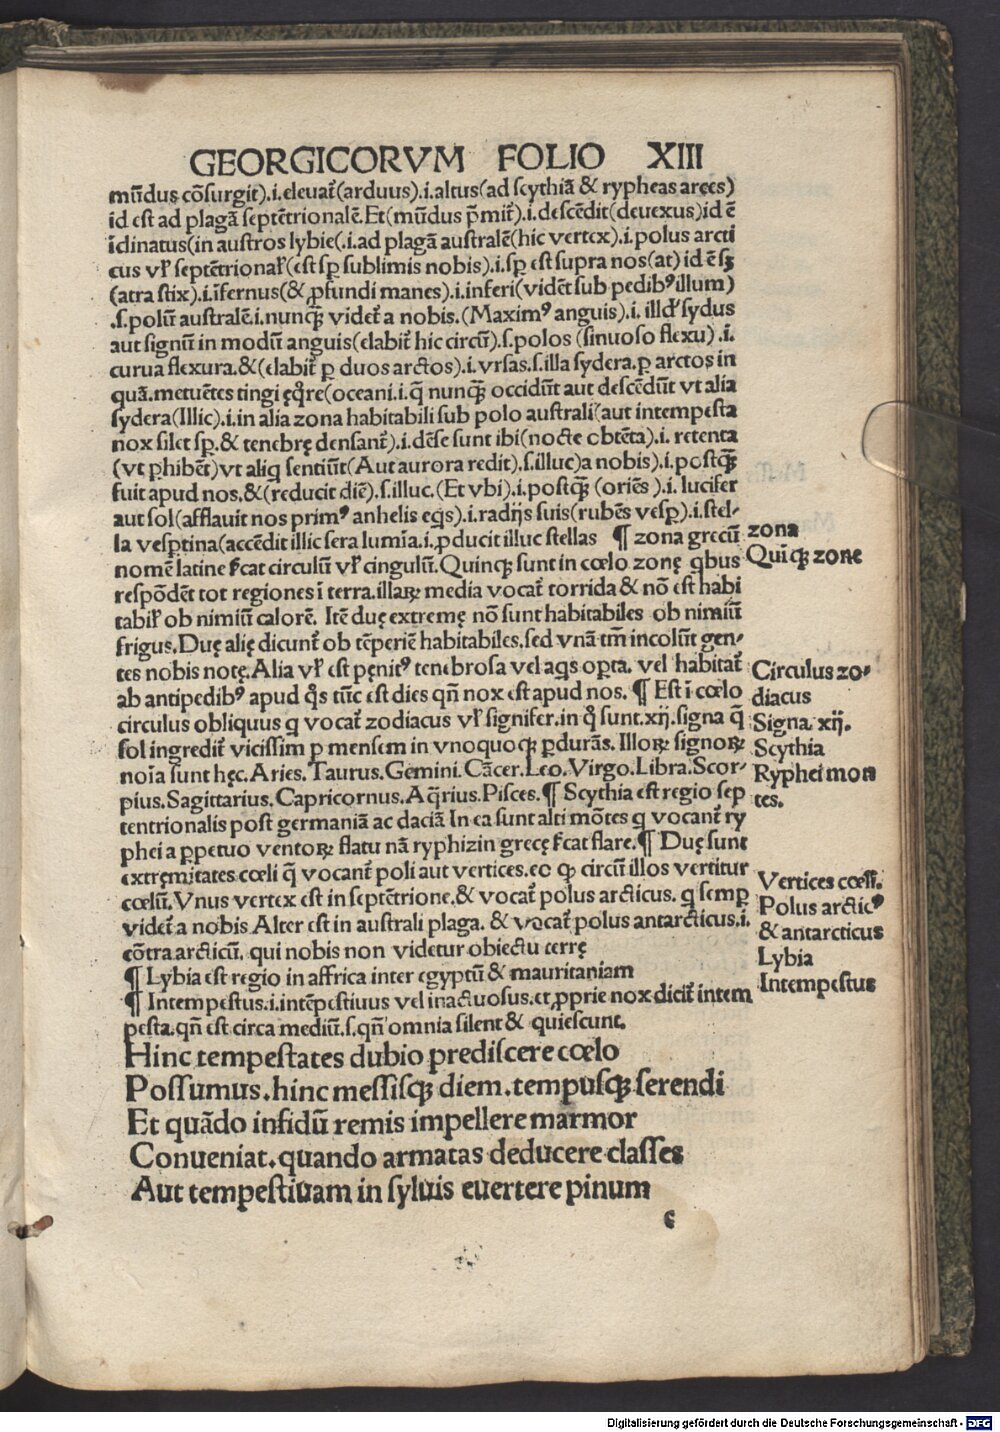 GEORGICORVM FOLIO XIII
mūdus cōsurgit).i.eleuat̄(arduus).i.altus(ad scythiā & rypheas arces)
id est ad plagā septētrionalē.Et(mūdus p̄mit̄).i.descēdit(deuexus)id ē
īclinatus(in austros lybie(.i.ad plagā australē(hic vertex).i.polus arcti
cus vl̄ septētrional̄(est sꝑ sublimis nobis).i.sꝑ est supra nos(at)id ē sꝫ
(atra stix).i.īfernus(& ꝓfundi manes).i.inferi(vidēt sub pedibꝰ illum)
.s.polū australē.i.nunqꝫ videt̄ a nobis.(Maximꝰ anguis).i. illd̄ sydus
aut signū in modū anguis(elabit̄ hic circū).s.polos (sinuoso flexu) .i.
curua flexura.&(elabit̄ ꝑ duos arctos).i.vrsas.s.illa sydera.ꝑ arctos in
quā.metuētes tingi eq̄re(oceani.i.q̄ nunqꝫ occidūt aut descēdūt vt alia
sydera(Illic).i.in alia zona habitabili sub polo australi(aut intempesta
nox silet sꝑ.& tenebrę densant̄).i.dēse sunt ibi(nocte obtēta).i. retenta
(vt ꝑhibēt)vt aliq̄ sentiūt(Aut aurora redit).s.illuc)a nobis).i.postqꝫ
fuit apud nos.&(reducit diē).s.illuc.(Et vbi).i.postqꝫ (oriēs ).i. lucifer
aut sol(afflauit nos primꝰ anhelis eqs).i.radijs suis(rubēs vesꝑ).i.stel-
la vesꝑtina(accēdit illic sera lumīa.i.ꝓducit illuc stellas ¶ zona grecū
nomē latine s̄cat circulū vl̄ cingulū.Quinqꝫ sunt in cœlo zonę qbus
respōdēt tot regiones ī terra.illaꝝ media vocat̄ torrida & nō est habi
tabil̄ ob nimiū calorē. Itē duę extremę nō sunt habitabiles ob nimiū
frigus.Duę alię dicunt̄ ob tēperiē habitabiles.sed vnā tm̄ incolūt gen-
tes nobis notę.Alia vl̄ est pęnitꝰ tenebrosa vel aqs opta. vel habitat̄
ab antipedibꝰ apud q̄s tūc est dies qn̄ nox est apud nos. ¶ Est ī cœlo
circulus obliquus q vocat̄ zodiacus vl̄ signifer.in q̄ sunt.xij.signa q̄
sol ingredit̄ vicissim ꝑ mensem in vnoquoqꝫ ꝑdurās. Illoꝝ signoꝝ
noīa sunt hęc.Aries.Taurus.Gemini.Cācer.Leo.Virgo.Libra.Scor-
pius.Sagittarius.Capricornus.Aq̄rius.Pisces.¶ Scythia est regio sep
tentrionalis post germaniā ac daciā In ea sunt alti mōtes q vocant̄ ry
phei a ꝑpetuo ventoꝝ flatu nā ryphizin grecę s̄cat flare.¶ Duę sunt
extręmitates cœli q̄ vocant̄ poli aut vertices.eo ꝙ circū illos vertitur
cœlū.Vnus vertex est in septētrione.& vocat̄ polus arcticus. q semꝑ
videt̄ a nobis Alter est in australi plaga. & vocat̄ polus antarcticus.i.
cōtra arcticū. qui nobis non videtur obiectu terrę
¶ Lybia est regio in affrica inter egyptū & mauritaniam
¶ Intempestus.i.intēpestiuus vel inactuosus.et ꝓprie nox dicit̄ intem
pesta.qn̄ est circa mediū.s.qn̄ omnia silent & quiescunt.
Hinc tempestates dubio prediscere cœlo
Possumus.hinc messisqꝫ diem.tempusqꝫ serendi
Et quādo infidū remis impellere marmor
Conueniat.quando armatas deducere classes
Aut tempestiuam in syluis euertere pinum
c
zona
Quīqꝫ zone
Circulus zo-
diacus
Signa. xij.
Scythia
Ryphei mon
tes.
Vertices cœli.
Polus arcticꝰ
& antarcticus
Lybia
Intempestus
Digitalisierung gefördert durch die Deutsche Forschungsgemeinschaft - DFG